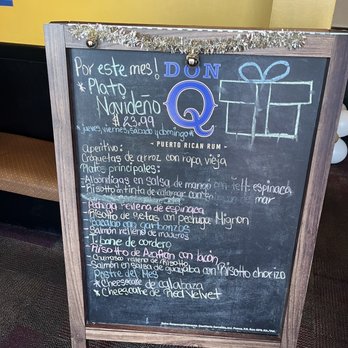 Por este mes!
DON
Q
PUERTO RICAN RUM
* Plato
Navideño
$23.99
*jueves, viernes, sabado y domingo*
Aperitivo:
Croquetas de arroz con ropa vieja
Platos principales:
-Albondigas en salsa de mango con espinaca
-Risotto en tinta de calamar con mar
-Pechuga rellena de espinaca
-Risotto de setas con pechuga Mignon
-Bacalao con garbanzos
-Salmón relleno de maduros
de cordero
-Risotto de Azafran con lacón
-Churrasco relleno de risotto
-Salmón en salsa de guayaba con Risotto chorizo
Postre del Mes
*Cheesecake de calabaza
*Cheesecake de Red Velvet